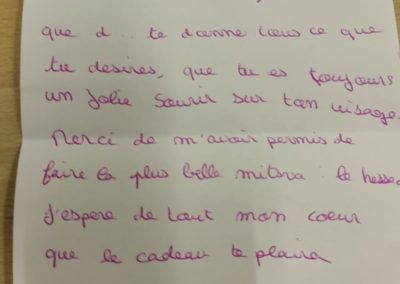 que d... te donne tous ce que
tu desires, que tu es toujours
un jolie sourir sur ton visage.
Merci de m'avoir permis de
faire la plus belle mitsva : le hessed
J'espere de tout mon coeur
que le cadeau te plaira